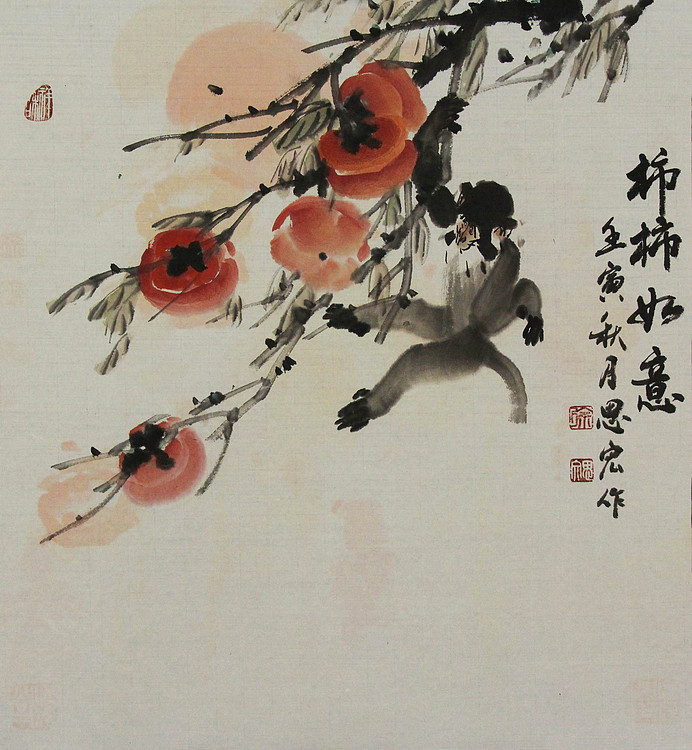 柿柿如意
壬寅秋月思宏作